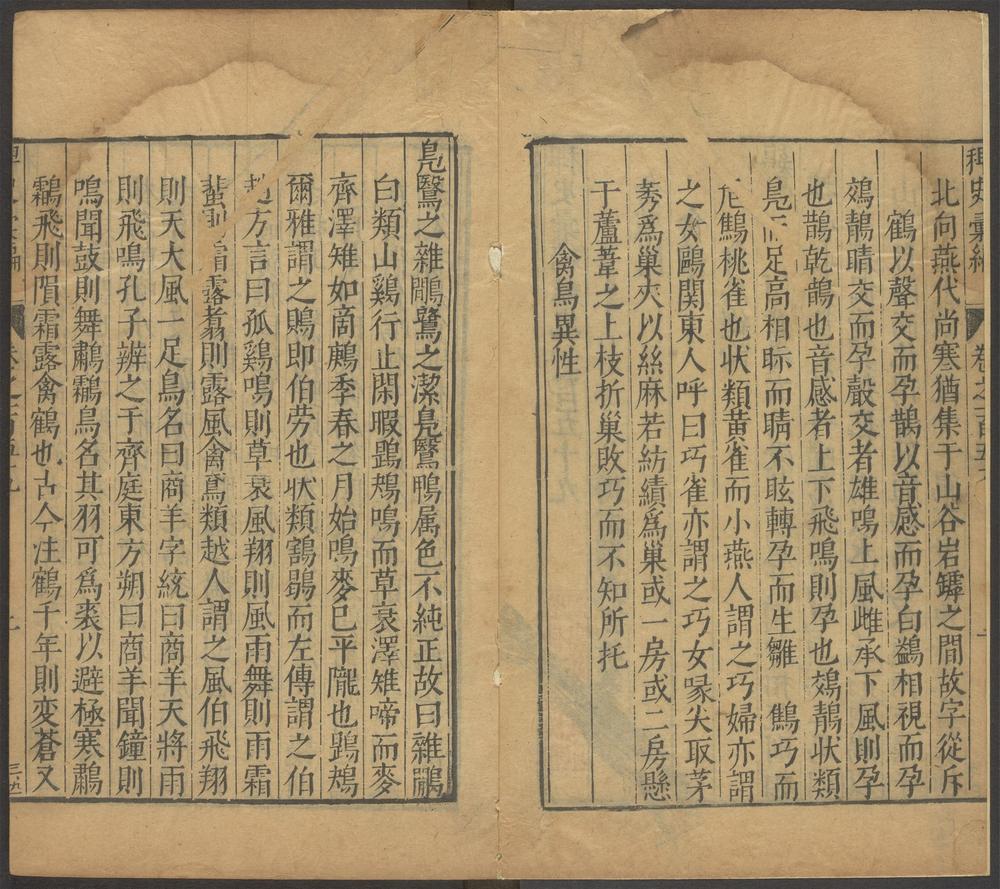 稗史彙編
卷之一百五
北向燕代尚寒猶集于山谷岩罅之間故字從斥
鶴以聲交而孕鵲以音感而孕白鷁相視而孕
鵁鶄睛交而孕聲交者雄鳴上風雌承下風則孕
也鵲乾鵲也音感者上下飛鳴則孕也鵁鶄狀類
鳧足高相眎而睛不眩轉孕而生雛鷦巧而
危鷦桃雀也狀類黃雀而小燕人謂之巧婦亦謂
之女鷗關東人呼曰巧雀亦謂之巧女喙尖取茅
莠爲巢夾以絲麻若紡績爲巢或一房或二房懸
于蘆葦之上枝折巢敗巧而不知所托
禽鳥異性
鳧鷖之雜鷳鷺之潔鳧鷖鴨属色不純正故曰雜鷳
白類山鷄行止閑暇鶗鴂鳴而草衰澤雉啼而麥
齊澤雉如啇鶊季春之月始鳴麥已平隴也鶗鴂
爾雅謂之鵙即伯劳也状類鶷鶡而左傳謂之伯
趙方言曰孤鷄鳴則草衰風翔則風雨舞則雨霜
蜚則霜露翥則露風禽鳶類越人謂之風伯飛翔
則天大風一足鳥名曰商羊字統曰商羊天將雨
則飛鳴孔子辨之于齊庭東方朔曰商羊聞鐘則
鳴聞鼓則舞鷫鸘鳥名其羽可爲裘以避極寒鷫
鸘飛則隕霜露禽鶴也古今注鶴千年則变蒼又